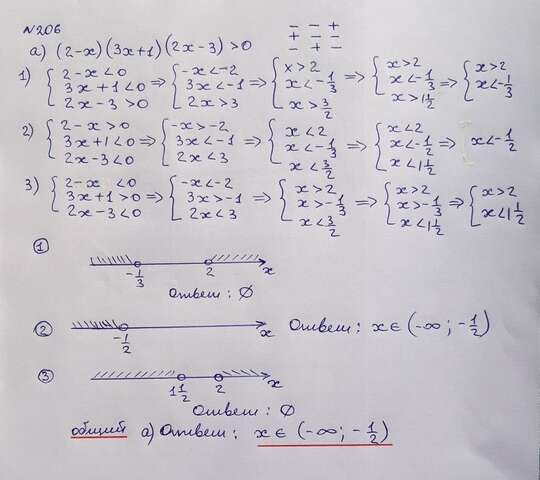 N206
− − +
а) (2-x)(3x+1)(2x-3)>0
+ − −
− + −
1) { 2-x<0 ; 3x+1<0 ; 2x-3>0 => { -x<-2 ; 3x<-1 ; 2x>3 => { x>2 ; x<-1/3 ; x>3/2 => { x>2 ; x<-1/3 ; x>1 1/2 => { x>2 ; x<-1/3
2) { 2-x>0 ; 3x+1<0 ; 2x-3<0 => { -x>-2 ; 3x<-1 ; 2x<3 => { x<2 ; x<-1/3 ; x<3/2 => { x<2 ; x<-1/2 ; x<1 1/2 => x<-1/2
3) { 2-x<0 ; 3x+1>0 ; 2x-3<0 => { -x<-2 ; 3x>-1 ; 2x<3 => { x>2 ; x>-1/3 ; x<3/2 => { x>2 ; x>-1/3 ; x<1 1/2 => { x>2 ; x<1 1/2
①
-1/3 2 x
Ответ: ∅
② -1/2 x Ответ: x∈(-∞; -1/2)
③
1 1/2 2 x
Ответ: ∅
общий а) Ответ: x∈(-∞; -1/2)